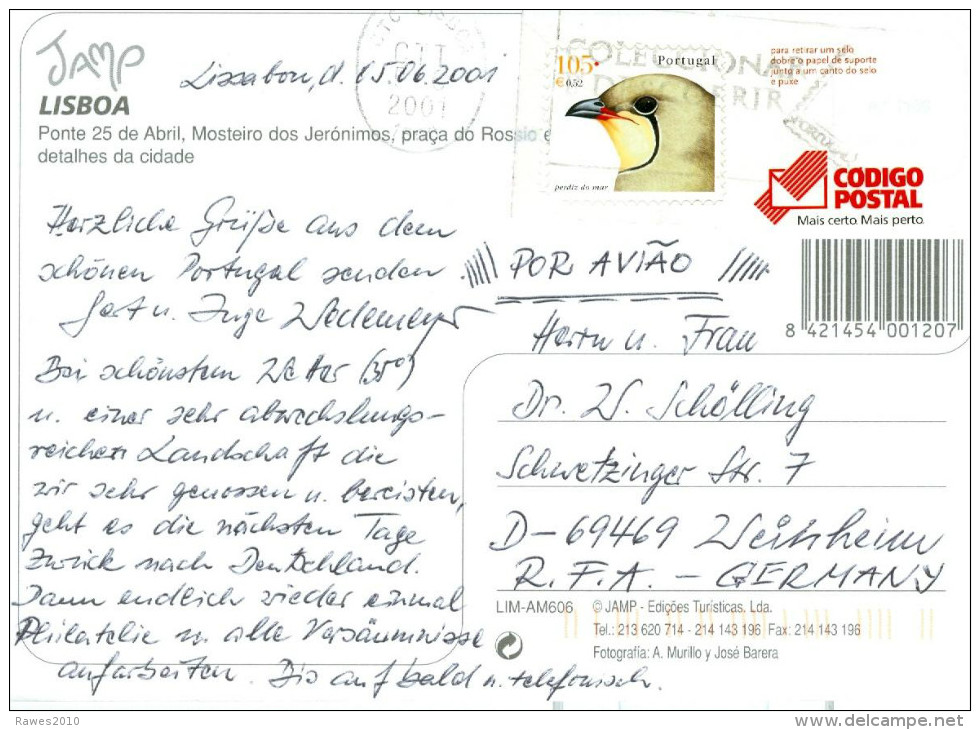 JAMP
LISBOA
Ponte 25 de Abril, Mosteiro dos Jerónimos, praça do Rossio e
detalhes da cidade
Lissabon, d. 15.06.2001
CTC LISBOA
CTT
2001
COLECCIONAR
DESCOBRIR
PORTUGAL
105
€ 0,52
Portugal
perdiz do mar
para retirar um selo
dobre o papel de suporte
junto a um canto do selo
e puxe
CÓDIGO
POSTAL
Mais certo. Mais perto.
8 421454 001207
Herzliche Grüße aus dem
schönen Portugal senden
u. Inge Wedemeyer
Bei schönstem Wetter (35°)
u. einer sehr abwechslungs-
reichen Landschaft die
wir sehr genossen u. bereisten,
geht es die nächsten Tage
zurück nach Deutschland.
Dann endlich wieder einmal
Philatelie u. alle Versäumnisse
aufarbeiten. Bis auf bald u. telefonisch.
POR AVIÃO
Herrn u. Frau
Dr. W. Schölling
Schwetzinger Str. 7
D-69469 Weinheim
R.F.A. - GERMANY
LIM-AM606 © JAMP - Edições Turísticas, Lda.
Tel.: 213 620 714 - 214 143 196 Fax: 214 143 196
Fotografía: A. Murillo y José Barera
Rawes2010
www.delcampe.net